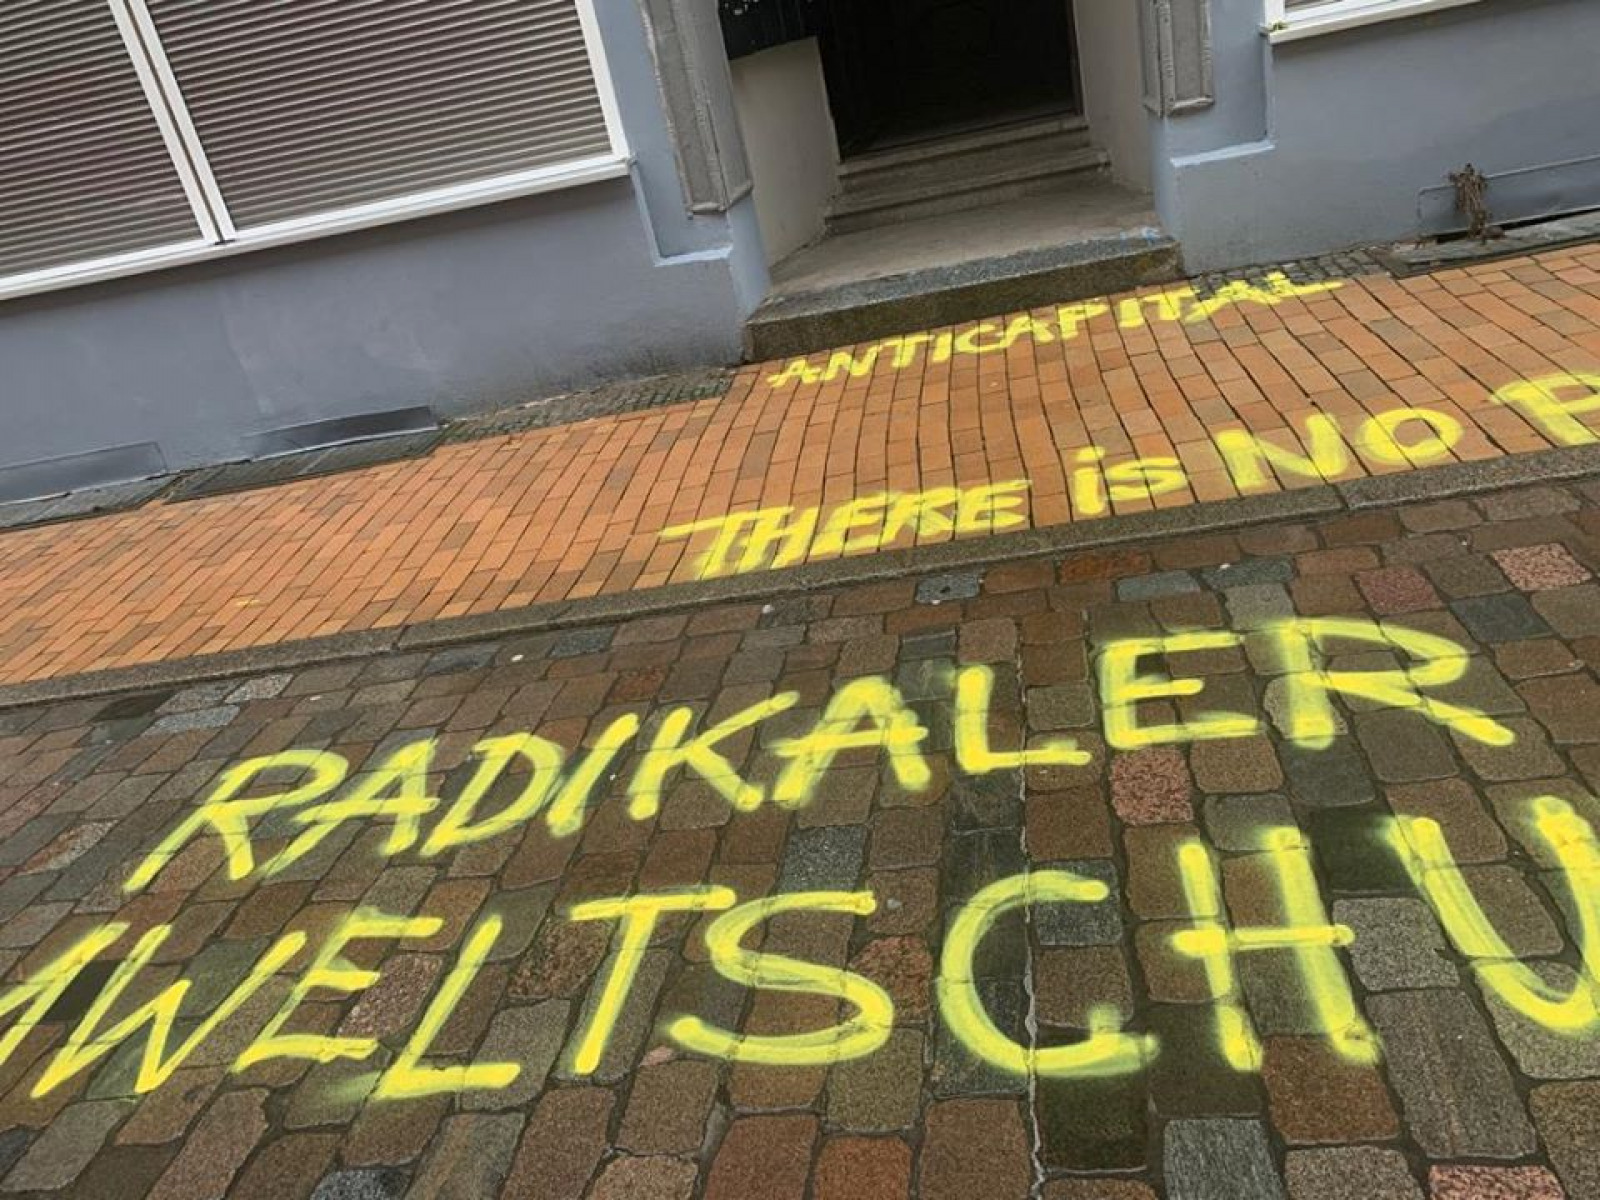 ANTICAPITAL
THERE is NO P
RADIKALER
MWELTSCHU